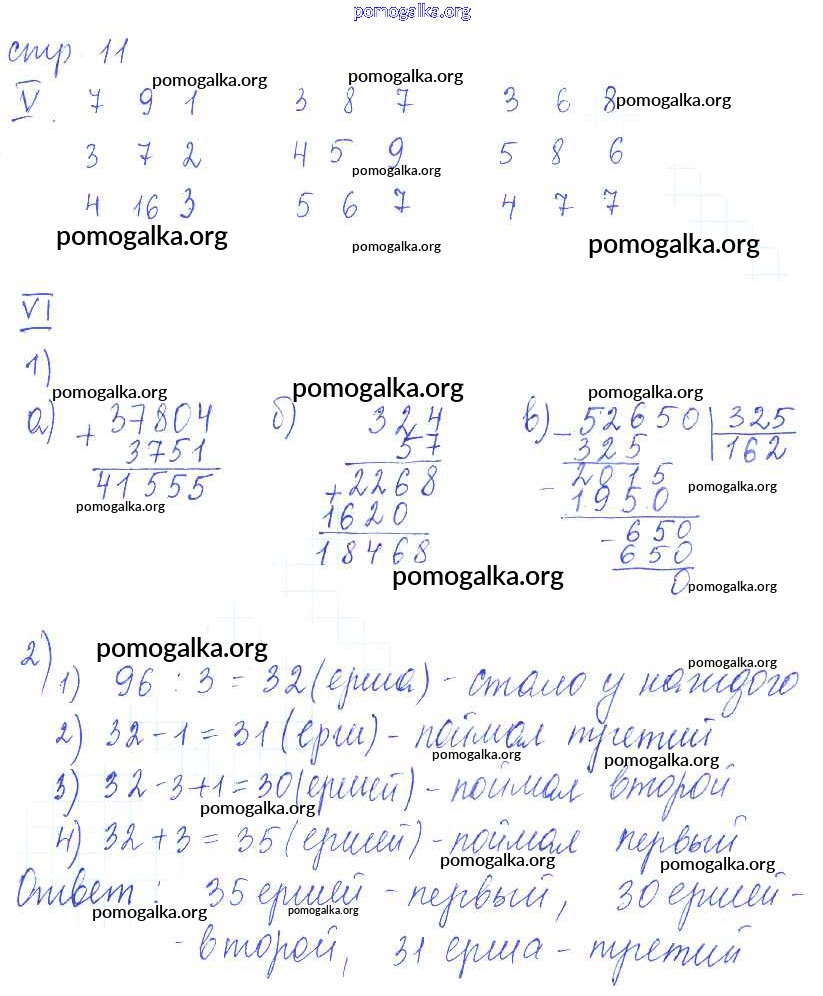 pomogalka.org
стр 11
pomogalka.org pomogalka.org
V. 7 9 1 3 8 7 3 6 8 pomogalka.org
3 7 2 4 5 9 5 8 6
pomogalka.org
4 16 3 5 6 7 4 7 7
pomogalka.org pomogalka.org pomogalka.org
VI
1)
pomogalka.org pomogalka.org pomogalka.org
а) + 37804 б) 324 в) - 52650 | 325
3751 57 325 162
41555 + 2268 - 2015 pomogalka.org
pomogalka.org 1620 1950
18468 - 650
650
pomogalka.org 0 pomogalka.org
2) pomogalka.org pomogalka.org
1) 96 : 3 = 32 (ерша) - стало у каждого
2) 32 - 1 = 31 (ерш) - поймал третий
pomogalka.org pomogalka.org
3) 32 - 3 + 1 = 30 (ершей) - поймал второй
pomogalka.org
4) 32 + 3 = 35 (ершей) - поймал первый
pomogalka.org pomogalka.org
Ответ : 35 ершей - первый, 30 ершей -
pomogalka.org pomogalka.org
- второй, 31 ерша - третий